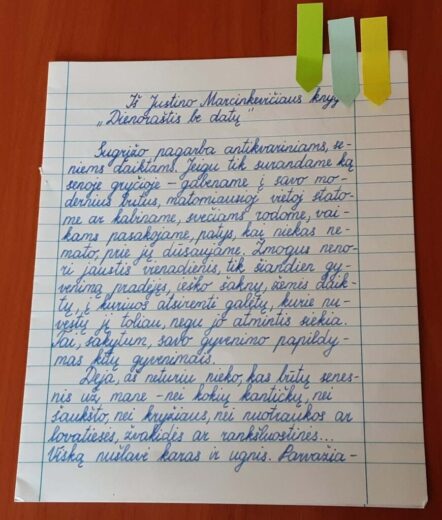 Iš Justino Marcinkevičiaus knygų
„Dienoraštis be datų“
Sugrįžo pagarba antikvariniams, se-
niems daiktams. Jeigu tik surandame ką
senoje gryčioje – gabename į savo mo-
dernius butus, matomiausioj vietoj stato-
me ar kabiname, svečiams rodome, vai-
kams pasakojame, patys, kai niekas ne-
mato, prie jų dūsaujame. Žmogus neno-
ri jaustis vienadienis, tik šiandien gy-
venimą pradėjęs, ieško šaknų, žemės, daik-
tų, į kuriuos atsiremti galėtų, kurie nu-
vestų jį toliau, negu jo atmintis siekia.
Tai, sakytum, savo gyvenimo papildy-
mas kitų gyvenimais.
Deja, aš neturiu nieko, kas būtų senes-
nis už mane – nei kokių kantičkų, nei
šaukšto, nei kryžiaus, nei nuotraukos ar
lovatiesės, žvakidės ar rankšluostinės...
Viską nušlavė karas ir ugnis. Parvažia-